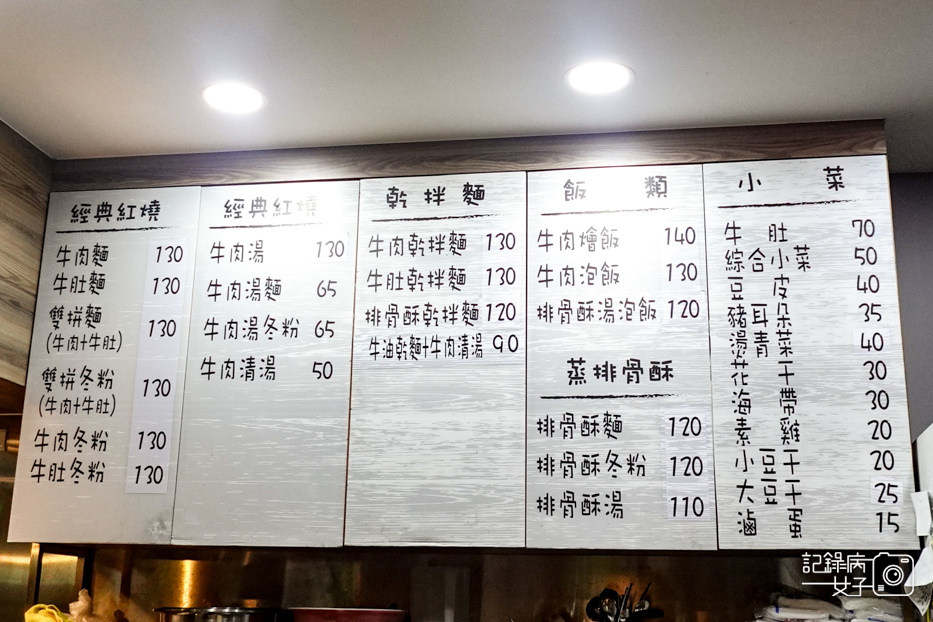 經典紅燒
牛肉麵 130
牛肚麵 130
雙拼麵 130
(牛肉+牛肚)
雙拼冬粉 130
(牛肉+牛肚)
牛肉冬粉 130
牛肚冬粉 130
經典紅燒
牛肉湯 130
牛肉湯麵 65
牛肉湯冬粉 65
牛肉清湯 50
乾拌麵
牛肉乾拌麵 130
牛肚乾拌麵 130
排骨酥乾拌麵 120
牛油乾麵+牛肉清湯 90
飯類
牛肉燴飯 140
牛肉泡飯 130
排骨酥湯泡飯 120
蒸排骨酥
排骨酥麵 120
排骨酥冬粉 120
排骨酥湯 110
小菜
牛肚 70
綜合小菜 50
豆皮 40
豬耳朵 35
燙青菜 40
花干 30
海帶 30
素雞 20
小豆干 20
大豆干 25
滷蛋 15
記錄病
女子